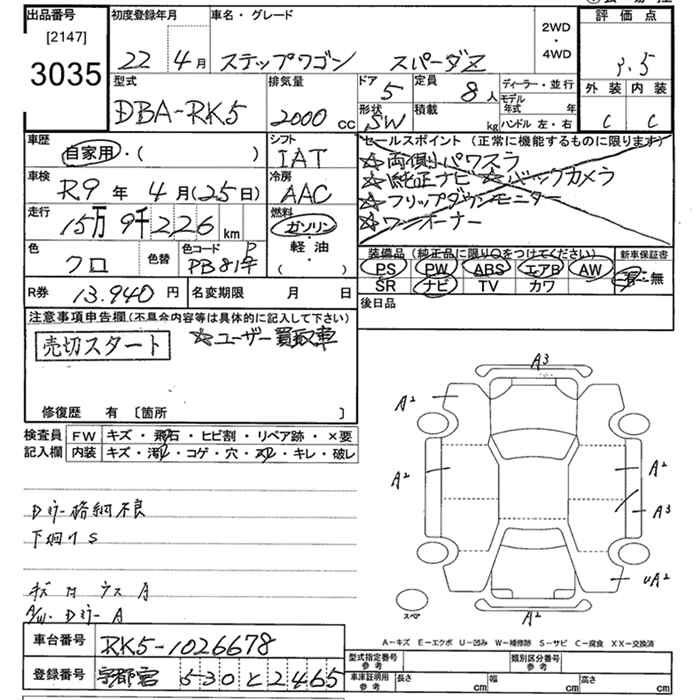 出品番号
[2147]
3035
初度登録年月
22 4月
車名・グレード
ステップワゴン スパーダZ
2WD
・
4WD
評価点
3.5
外装 内装
C C
型式
DBA-RK5
排気量
2000 cc
ドア
5
定員
8人
ディーラー・並行
形状
SW
積載
kg
モデル年式 年
ハンドル 左・右
車歴
自家用・( )
シフト
IAT
セールスポイント (正常に機能するものに限ります)
☆両側パワスラ
☆純正ナビ ☆バックカメラ
☆フリップダウンモニター
☆ワンオーナー
車検
R9年 4月(25日)
冷房
AAC
走行
15万9千226km
燃料
ガソリン
軽油
( ・ )
色
クロ
色替
色コード
PB81P
装備品 (純正品に限り○をつけてください)
PS PW ABS エアB AW
SR ナビ TV カワ
新車保証書
有・無
R券 13.940円
名変期限 月 日
後日品
注意事項申告欄(不具合内容等は具体的に記入して下さい)
売切スタート ☆ユーザー買取車
修復歴 有 [箇所 ]
検査員
記入欄
FW キズ・飛石・ヒビ割・リペア跡・×要
内装 キズ・汚・コゲ・穴・スレ・キレ・破レ
Dミラー格納不良
下廻りS
キズ
A/W. Dミラー A
A3
A2
A2
A2
A2
A3
UA2
A2
スペア
A-キズ E-エクボ U-凹み W-補修跡 S-サビ C-腐食 XX-交換済
車台番号 RK5-1026678
登録番号 宇都宮 530 と 2465
型式指定番号
参考
類別区分番号
参考
車庫証明用
参考
長さ cm
幅 cm
高さ cm